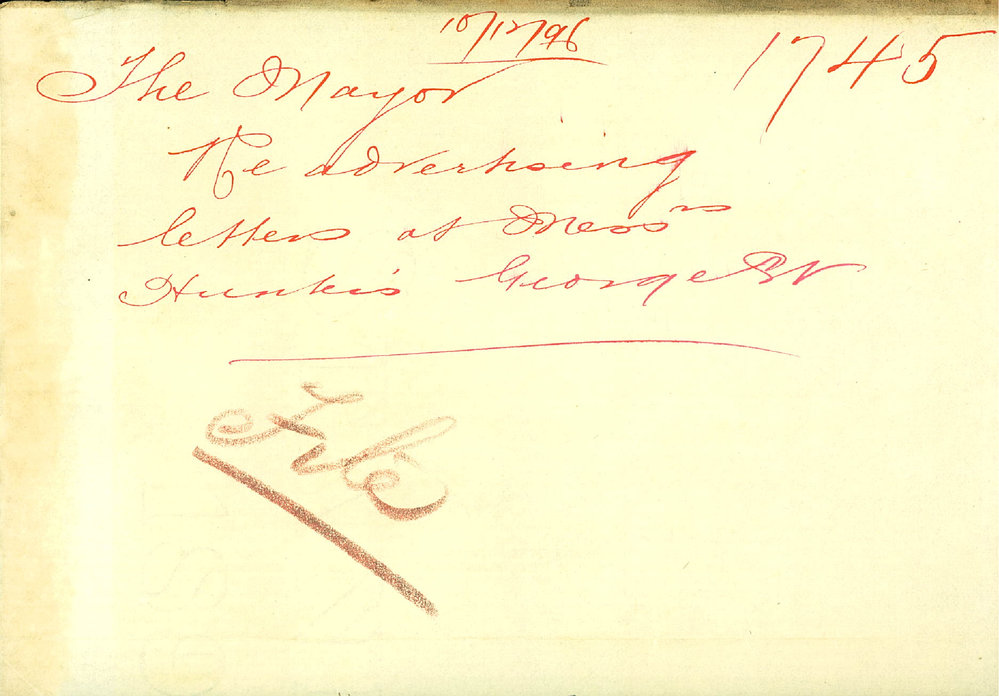 10/12/96
1745
The Mayor
Re advertising
letters at Messrs
George St
File